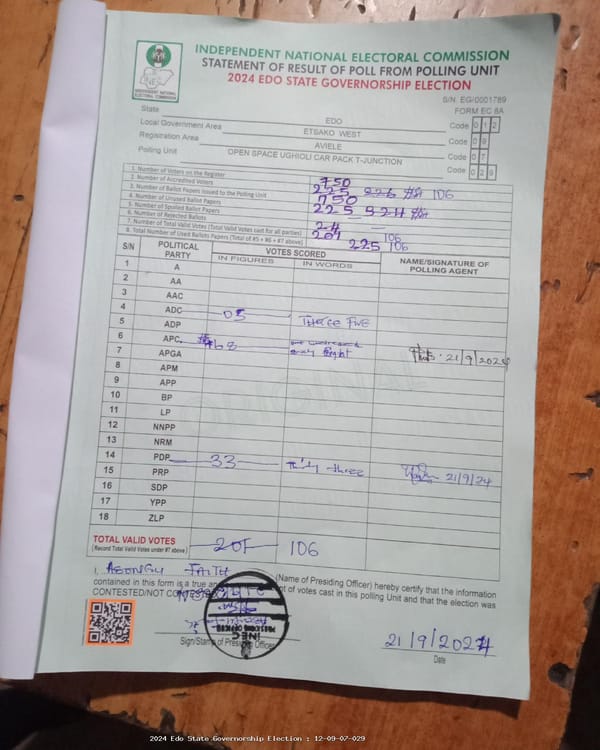 INDEPENDENT NATIONAL ELECTORAL COMMISSION
STATEMENT OF RESULT OF POLL FROM POLLING UNIT
2024 EDO STATE GOVERNORSHIP ELECTION
INEC
INDEPENDENT NATIONAL ELECTORAL COMMISSION
S/N: EG/0001789
FORM EC 8A
State EDO Code 0 1 2
Local Government Area ETSAKO WEST Code 0 9
Registration Area AVIELE Code 0 7
Polling Unit OPEN SPACE UGHIOLI CAR PACK T-JUNCTION Code 0 2 9
1. Number of Voters on the Register 750
2. Number of Accredited Voters 225 226 106
3. Number of Ballot Papers Issued to the Polling Unit 750
4. Number of Unused Ballot Papers 225 524
5. Number of Spoiled Ballot Papers
6. Number of Rejected Ballots 24
7. Number of Total Valid Votes (Total Valid Votes cast for all parties) 201 106
8. Total Number of Used Ballots Papers (Total of #5 + #6 + #7 above) 225 106
S/N POLITICAL PARTY VOTES SCORED NAME/SIGNATURE OF POLLING AGENT
IN FIGURES IN WORDS
1 A
2 AA
3 AAC
4 ADC 05
5 ADP Five
6 APC 68
7 APGA sixty Eight 21/9/2024
8 APM
9 APP
10 BP
11 LP
12 NNPP
13 NRM
14 PDP 33 Thirty three
15 PRP 21/9/24
16 SDP
17 YPP
18 ZLP
TOTAL VALID VOTES 201 106
(Record Total Valid Votes under #7 above)
I, FAITH (Name of Presiding Officer) hereby certify that the information
contained in this form is a true of votes cast in this polling Unit and that the election was
CONTESTED/NOT CONTESTED
INEC
PRESIDING OFFICER
Sign/Stamp of Presiding Officer
21/9/2024
Date
2024 Edo State Governorship Election : 12-09-07-029